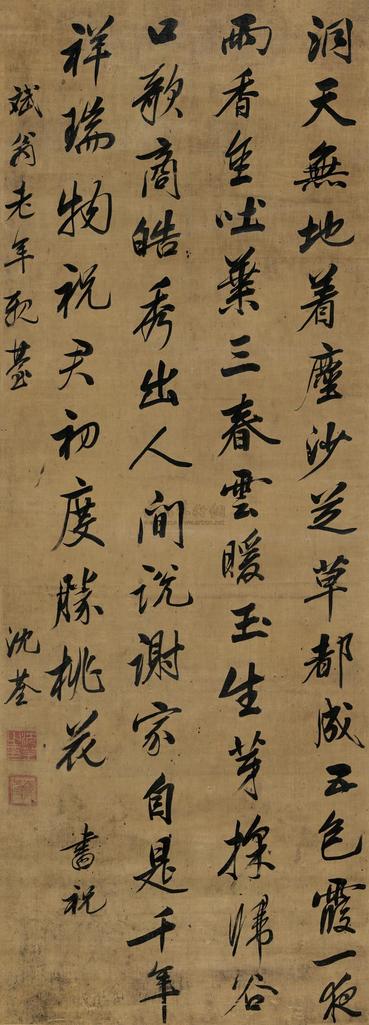 洞天無地着塵沙芝草都成五色霞一夜
雨香金吐葉三春雲暖玉生芽採歸谷
口歌商皓秀出人間說謝家自是千年
祥瑞物祝君初度勝桃花 書祝
斌翁老年親臺 沈荃